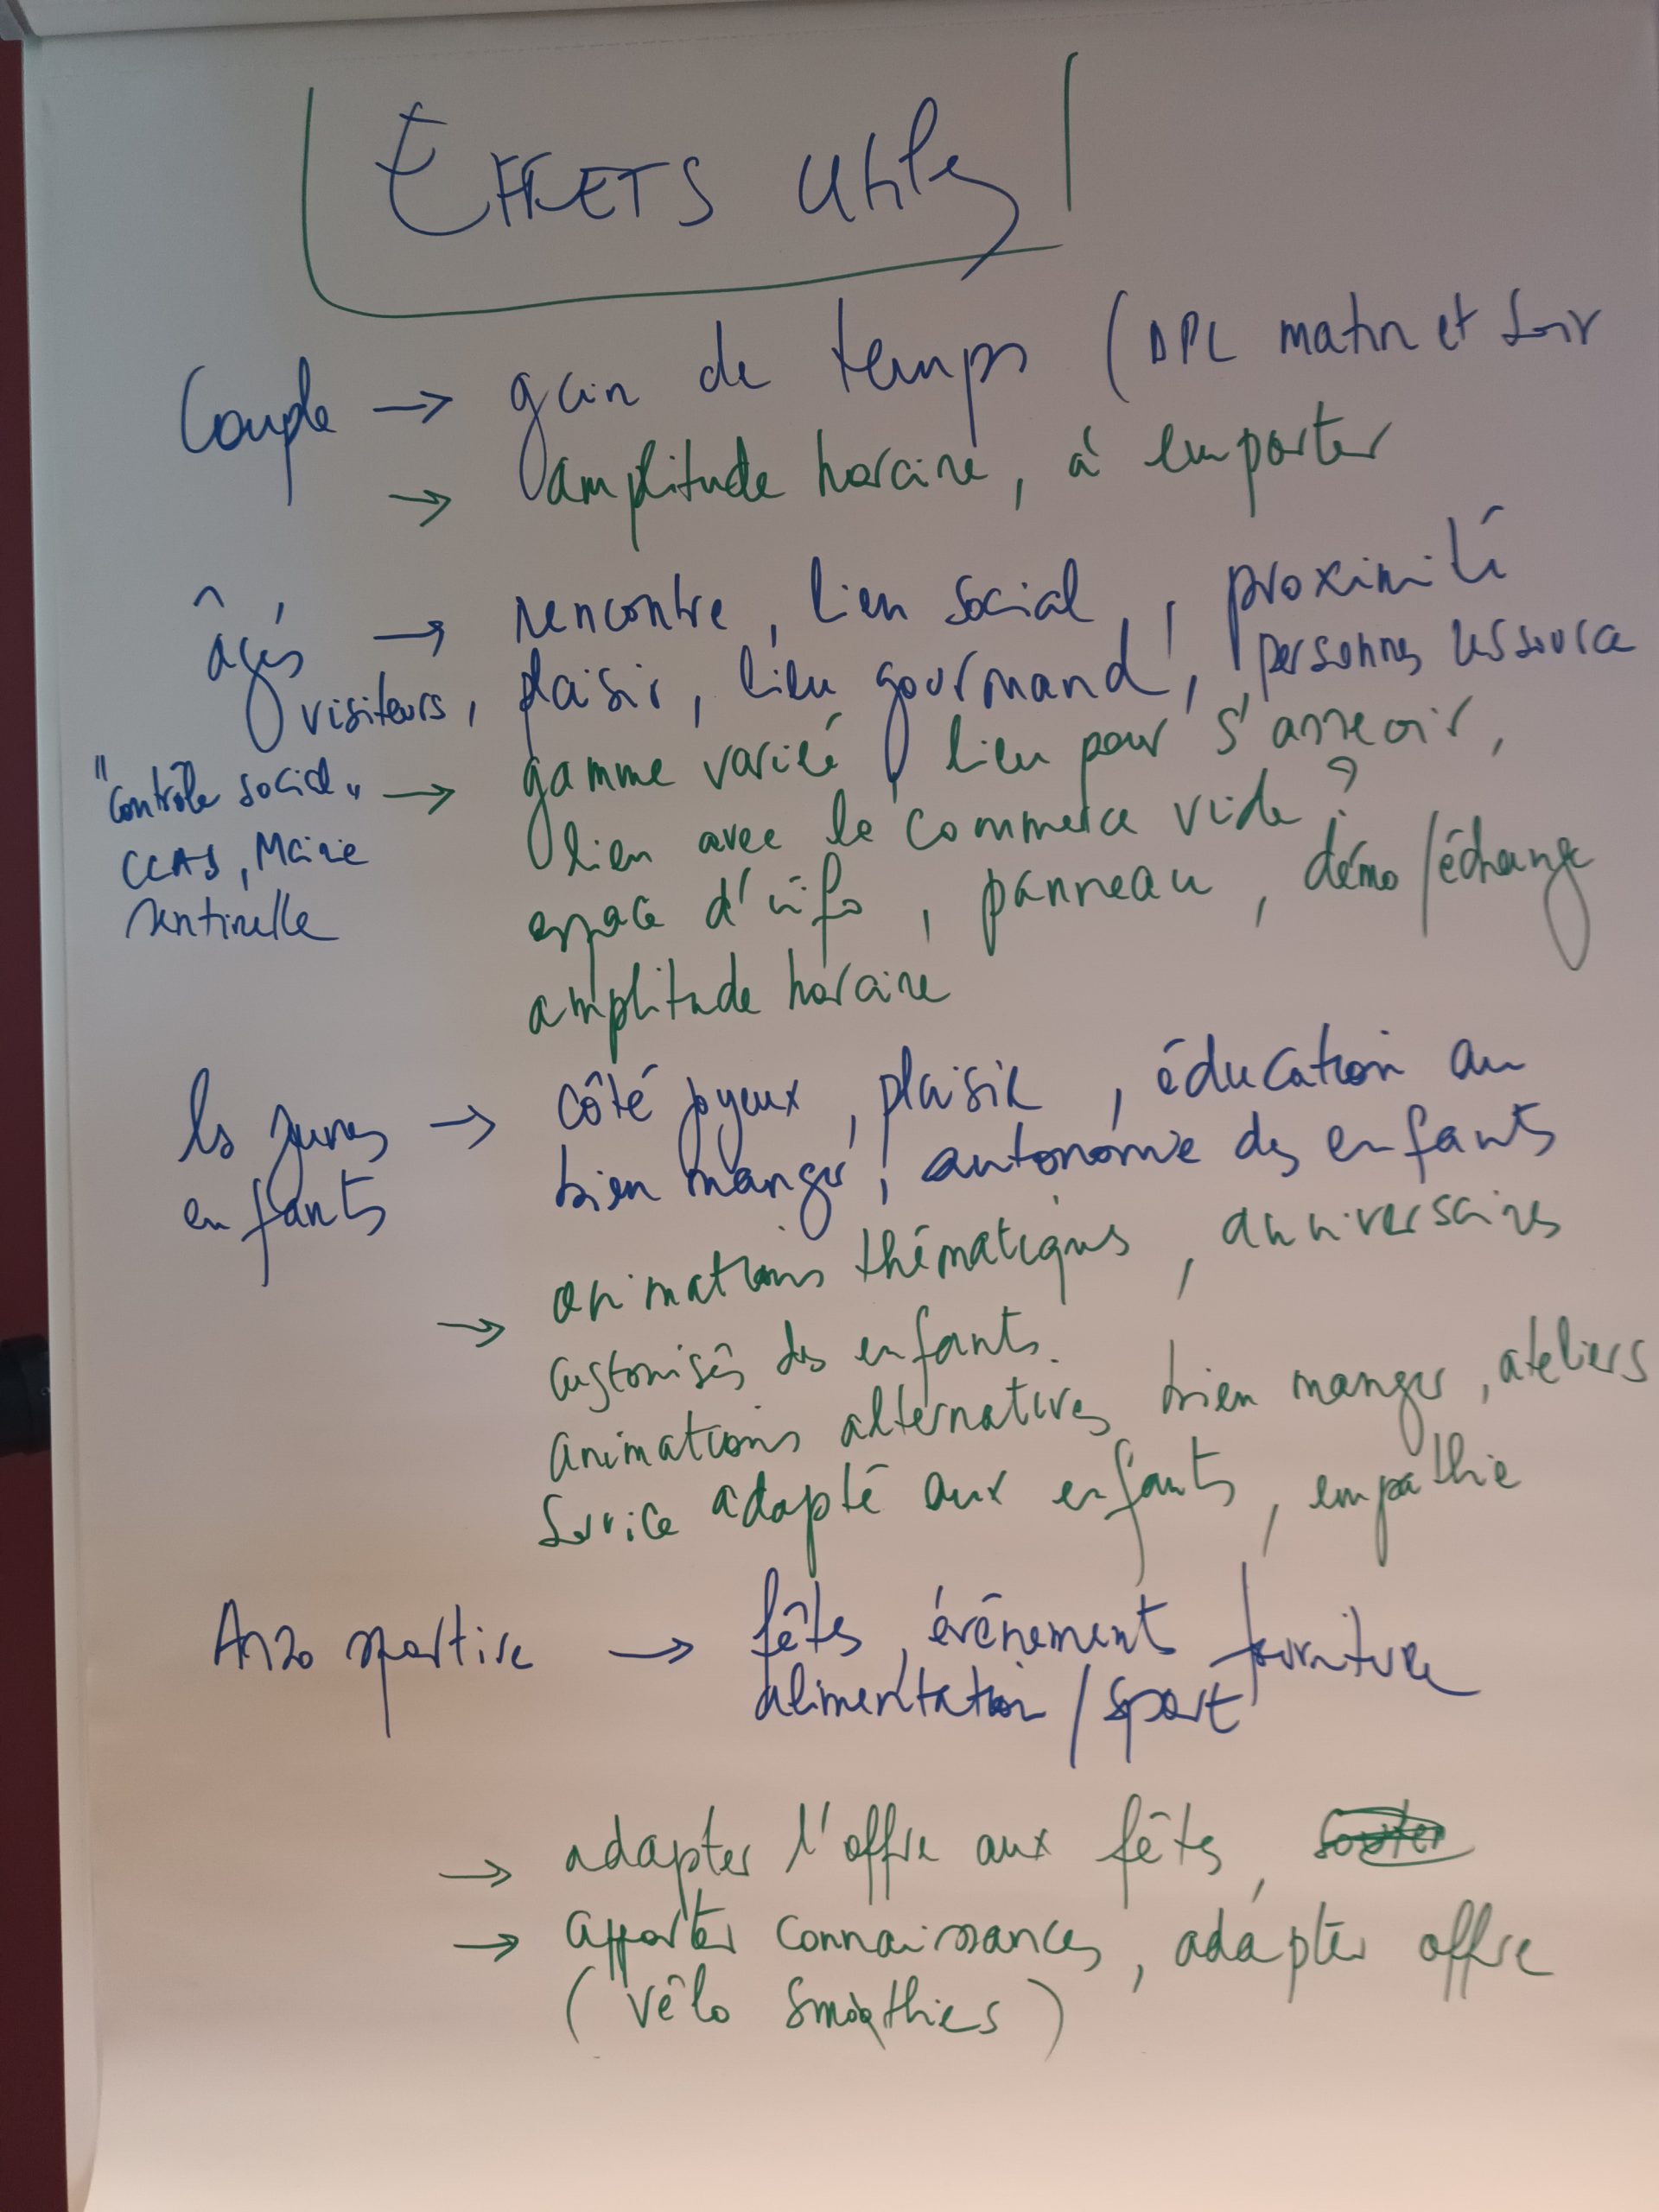 EFFETS utiles
Couple → gain de temps (DPL matin et soir
→ amplitude horaire, à emporter
âgés → rencontre, lien social, proximité
visiteurs, plaisir, lieu gourmand, personnes ressource
"contrôle social" → gamme varié, lieu pour s'asseoir,
lien avec le commerce vide ?
CCAS, Mairie
espace d'info, panneau, démo/échange
sentinelle
amplitude horaire
les jeunes → côté joyeux, plaisir, éducation au
enfants bien manger, autonomie des enfants
→ animations thématiques, anniversaires
customisés des enfants.
animations alternatives bien manger, ateliers
Service adapté aux enfants, empathie
Asso sportive → fêtes, événement fourniture
alimentation / sport
→ adapter l'offre aux fêtes,
→ apporter connaissances, adapter offre
(vélo smoothies)